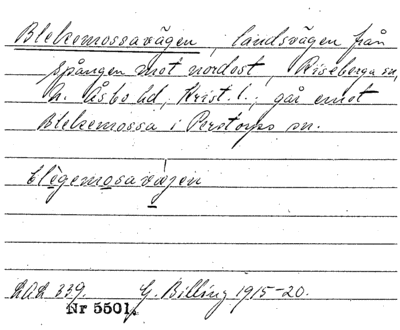 Blekemossavägen, landsvägen från
spången mot nordost, Riseberga sn,
N. Åsbo hd, Krist. l.; går emot
Blekemossa i Perstorps sn.
blegemosavæjen
LAL 339. G. Billing 1915-20.
Nr 5501.